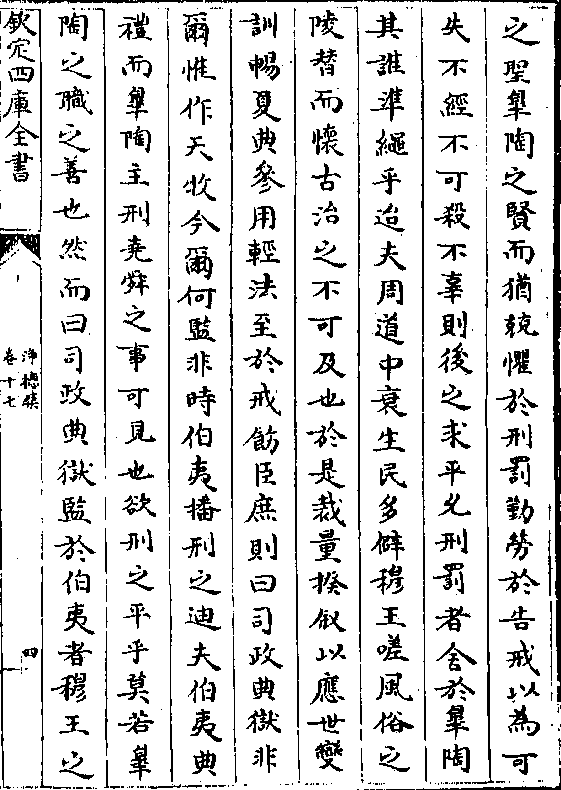 之聖臯陶之賢而猶兢懼於刑罰勤勞於告戒以為可
失不經不可殺不辜則後之求平允刑罰者舍於臯陶
其誰準繩乎迨夫周道中衰生民多僻穆王嗟風俗之
陵替而懷古治之不可及也於是裁量揆叙以應世變
訓暢夏典參用輕法至於戒飭臣庶則曰司政典獄非
爾惟作天牧今爾何監非時伯夷播刑之迪夫伯夷典
禮而臯陶主刑堯舜之事可見也欲刑之平乎莫若臯
陶之職之善也然而曰司政典獄監於伯夷者穆王之
欽定四庫全書
淨德集
卷十七
四